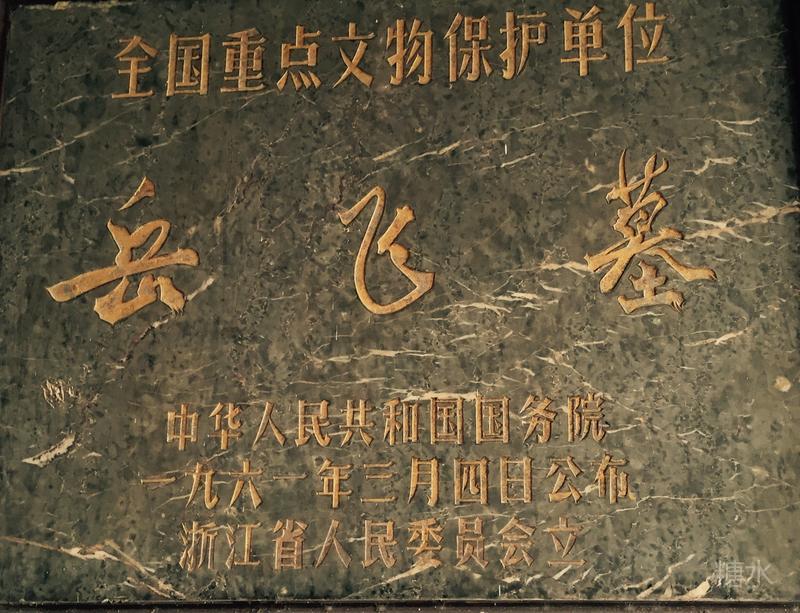 全国重点文物保护单位
岳飞墓
中华人民共和国国务院
一九六一年三月四日公布
浙江省人民委员会立
糖水